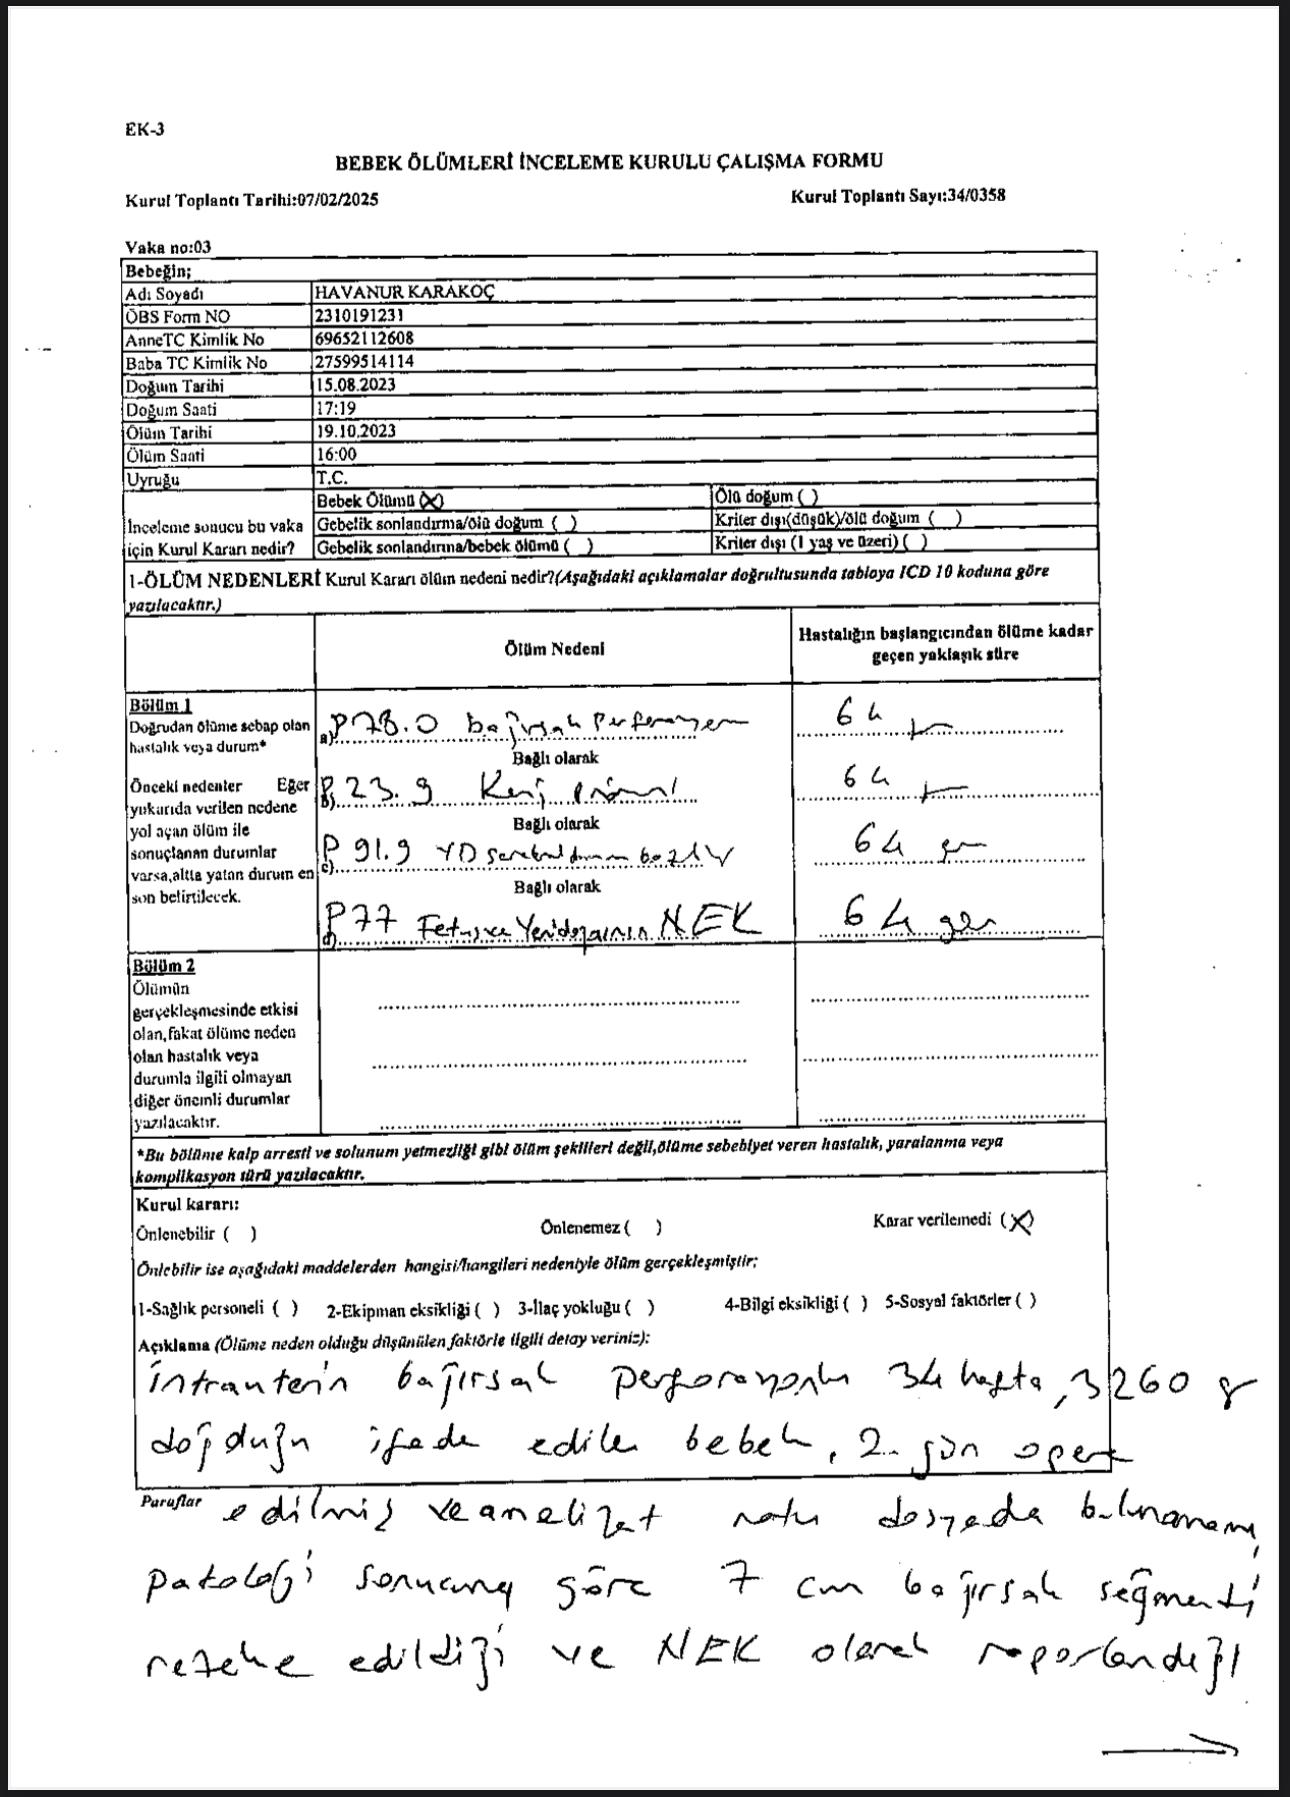 EK-3
BEBEK ÖLÜMLERİ İNCELEME KURULU ÇALIŞMA FORMU
Kurul Toplantı Tarihi:07/02/2025 Kurul Toplantı Sayı:34/0358
Vaka no:03
Bebeğin;
Adı Soyadı HAVANUR KARAKOÇ
ÖBS Form NO 2310191231
AnneTC Kimlik No 69652112608
Baba TC Kimlik No 27599514114
Doğum Tarihi 15.08.2023
Doğum Saati 17:19
Ölüm Tarihi 19.10.2023
Ölüm Saati 16:00
Uyruğu T.C.
İnceleme sonucu bu vaka için Kurul Kararı nedir?
Bebek Ölümü (X) Ölü doğum ( )
Gebelik sonlandırma/ölü doğum ( ) Kriter dışı(düşük)/ölü doğum ( )
Gebelik sonlandırma/bebek ölümü ( ) Kriter dışı (1 yaş ve üzeri) ( )
1-ÖLÜM NEDENLERİ Kurul Kararı ölüm nedeni nedir?(Aşağıdaki açıklamalar doğrultusunda tabloya ICD 10 koduna göre
yazılacaktır.)
Ölüm Nedeni
Hastalığın başlangıcından ölüme kadar
geçen yaklaşık süre
Bölüm 1
Doğrudan ölüme sebap olan
hastalık veya durum*
a) P78.0 bağırsak perforasyonu 64
Bağlı olarak
Önceki nedenler Eğer
yukarıda verilen nedene
yol açan ölüm ile
sonuçlanan durumlar
varsa,altta yatan durum en
son belirtilecek.
b) P 23.9 64
Bağlı olarak
c) P 91.9 YD 64
Bağlı olarak
d) P77 Fetus ve Yenidoğanın NEK 64 gün
Bölüm 2
Ölümün
gerçekleşmesinde etkisi
olan,fakat ölüme neden
olan hastalık veya
durumla ilgili olmayan
diğer önemli durumlar
yazılacaktır.
*Bu bölüme kalp arresti ve solunum yetmezliği gibi ölüm şekilleri değil,ölüme sebebiyet veren hastalık, yaralanma veya
komplikasyon türü yazılacaktır.
Kurul kararı:
Önlenebilir ( ) Önlenemez ( ) Karar verilemedi (X)
Önlebilir ise aşağıdaki maddelerden hangisi/hangileri nedeniyle ölüm gerçekleşmiştir;
1-Sağlık personeli ( ) 2-Ekipman eksikliği ( ) 3-İlaç yokluğu ( ) 4-Bilgi eksikliği ( ) 5-Sosyal faktörler ( )
Açıklama (Ölüme neden olduğu düşünülen faktörle ilgili detay veriniz):
İntrauterin bağırsak perforasyonlu 34 hafta, 3260 gr
doğduğu ifade edilen bebek, 2. gün opere
Paraflar edilmiş ve ameliyat notu dosyada bulunamamış,
patoloji sonucuna göre 7 cm bağırsak segmenti
rezeke edildiği ve NEK olarak raporlandığı